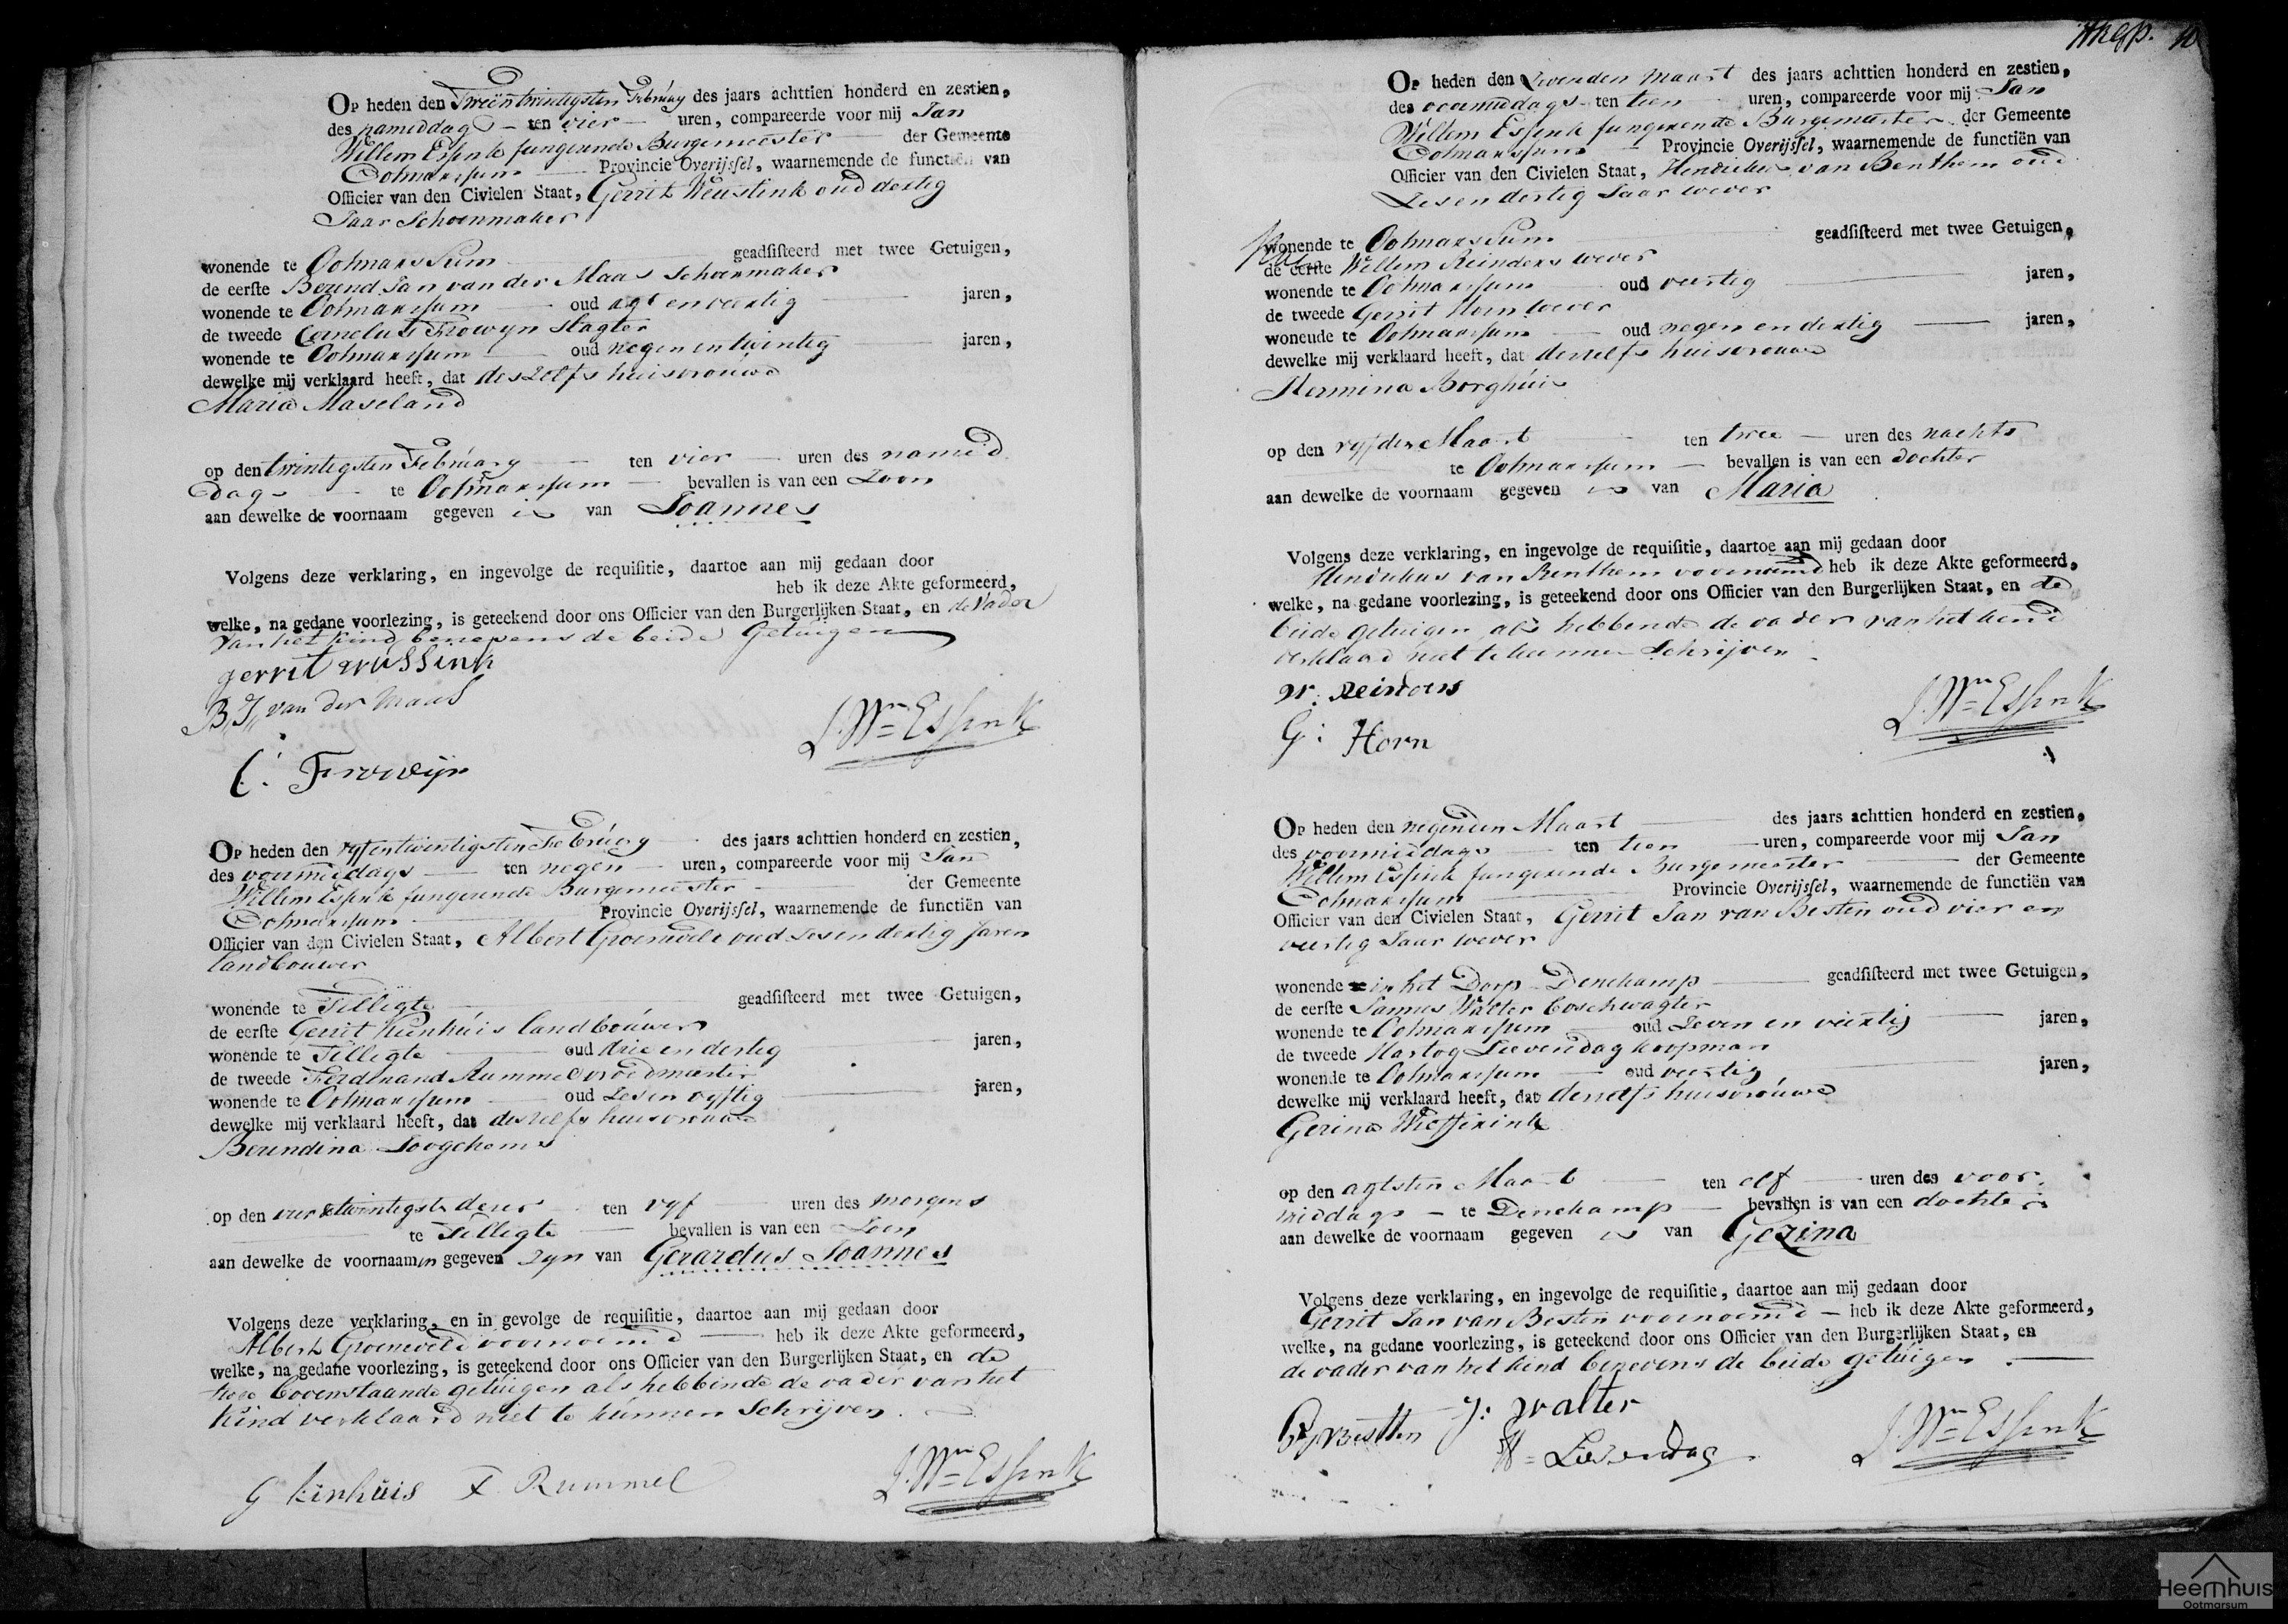 Op heden den Tweentwintigsten February des jaars achttien honderd en zestien,
des namiddags ten vier uren, compareerde voor mij Jan
Willem Essink fungerende Burgemeester der Gemeente
Ootmarssum Provincie Overijssel, waarnemende de functiën van
Officier van den Civielen Staat, Gerrit Weustink oud dertig
Jaar Schoenmaker
wonende te Ootmarssum geadsisteerd met twee Getuigen,
de eerste Berend Jan van der Maas Schoenmaker
wonende te Ootmarssum oud agt en veertig jaren,
de tweede Cornelus Frowyn Slagter
wonende te Ootmarssum oud negen en twintig jaren,
dewelke mij verklaard heeft, dat deszelfs huisvrouwe
Maria Maseland
op den twintigsten February ten vier uren des namid
dags te Ootmarssum bevallen is van een Zoon
aan dewelke de voornaam gegeven is van Joannes
Volgens deze verklaring, en ingevolge de requisitie, daartoe aan mij gedaan door
heb ik deze Akte geformeerd,
welke, na gedane voorlezing, is geteekend door ons Officier van den Burgerlijken Staat, en de Vader
van het Kind benevens de beide Getuigen
gerrit wussink
B,J, van der Maas
J. Wm Essink
C: Frowijn
Op heden den vyfentwintigsten February des jaars achttien honderd en zestien,
des voormiddags ten negen uren, compareerde voor mij Jan
Willem Essink fungerende Burgemeester der Gemeente
Ootmarssum Provincie Overijssel, waarnemende de functiën van
Officier van den Civielen Staat, Albert Groeneveld oud zesendertig Jaren
landbouwer
wonende te Tilligte geadsisteerd met twee Getuigen,
de eerste Gerrit Kienhuis landbouwer
wonende te Tilligte oud drie en dertig jaren,
de tweede Ferdinand Rummel vroedmeester
wonende te Ootmarssum oud zesenvyftig jaren,
dewelke mij verklaard heeft, dat deszelfs huisvrouwe
Berendina Loogehems
op den vier & twintigste dezer ten vyf uren des morgens
te Tilligte bevallen is van een Zoon
aan dewelke de voornaamen gegeven zyn van Gerardus Joannes
Volgens deze verklaring, en in gevolge de requisitie, daartoe aan mij gedaan door
Albert Groeneveld voornoemd heb ik deze Akte geformeerd,
welke, na gedane voorlezing, is geteekend door ons Officier van den Burgerlijken Staat, en de
twee bovenstaande getuigen als hebbende de vader van het
Kind verklaard niet te kunnen Schrijven.
G kinhuis F. Rummel J. Wm Essink
Op heden den Zevenden Maart des jaars achttien honderd en zestien,
des voormiddags ten tien uren, compareerde voor mij Jan
Willem Essink fungerende Burgemeester der Gemeente
Ootmarssum Provincie Overijssel, waarnemende de functiën van
Officier van den Civielen Staat, Hendrikus van Benthem oud
Zesendertig Jaar wever
wonende te Ootmarssum geadsisteerd met twee Getuigen,
de eerste Willem Reinders wever
wonende te Ootmarssum oud veertig jaren,
de tweede Gerrit Horn wever
wonende te Ootmarssum oud negen en dertig jaren,
dewelke mij verklaard heeft, dat deszelfs huisvrouwe
Hermina Borghuis
op den vyfden Maart ten twee uren des nachts
te Ootmarssum bevallen is van een dochter
aan dewelke de voornaam gegeven is van Maria
Volgens deze verklaring, en ingevolge de requisitie, daartoe aan mij gedaan door
Hendrikus van Benthem voornoemd heb ik deze Akte geformeerd,
welke, na gedane voorlezing, is geteekend door ons Officier van den Burgerlijken Staat, en de
beide getuigen als hebbende de vader van het kind
verklaard niet te kunnen Schrijven
W: Reinders
J. Wm Essink
G: Horn
Op heden den negenden Maart des jaars achttien honderd en zestien,
des voormiddags ten tien uren, compareerde voor mij Jan
Willem Essink fungerende Burgemeester der Gemeente
Ootmarssum Provincie Overijssel, waarnemende de functiën van
Officier van den Civielen Staat, Gerrit Jan van Besten oud vier en
veertig Jaar wever
wonende in het Dorp Denekamp geadsisteerd met twee Getuigen,
de eerste Jannes Walter boschwagter
wonende te Ootmarssum oud Zeven en veertig jaren,
de tweede Hartog Leevendag koopman
wonende te Ootmarssum oud veertig jaren,
dewelke mij verklaard heeft, dat deszelfs huisvrouwe
Gerina Wiefferink
op den agtsten Maart ten elf uren des voor
middags te Denekamp bevallen is van een dochter
aan dewelke de voornaam gegeven is van Gezina
Volgens deze verklaring, en ingevolge de requisitie, daartoe aan mij gedaan door
Gerrit Jan van Besten voornoemd heb ik deze Akte geformeerd,
welke, na gedane voorlezing, is geteekend door ons Officier van den Burgerlijken Staat, en
de vader van het kind benevens de beide getuigen
J: Walter
H= Levendag
J. Wm Essink
Heemhuis
Ootmarsum